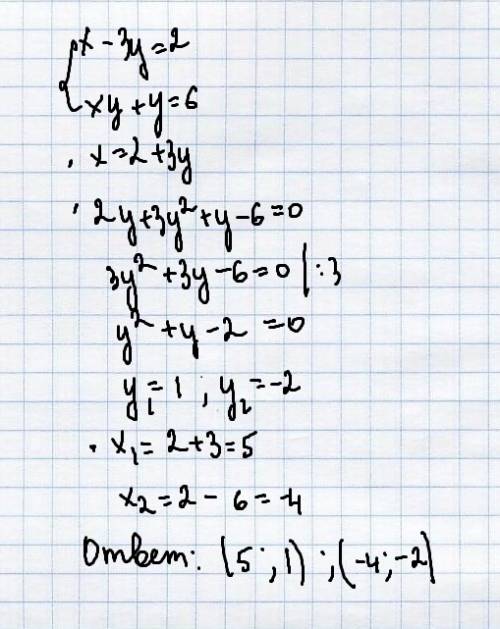 x - 3y = 2
xy + y = 6
x = 2 + 3y
2y + 3y² + y - 6 = 0
3y² + 3y - 6 = 0 | : 3
y² + y - 2 = 0
y₁ = 1 ; y₂ = -2
x₁ = 2 + 3 = 5
x₂ = 2 - 6 = -4
Ответ: (5 ; 1) ; (-4 ; -2)